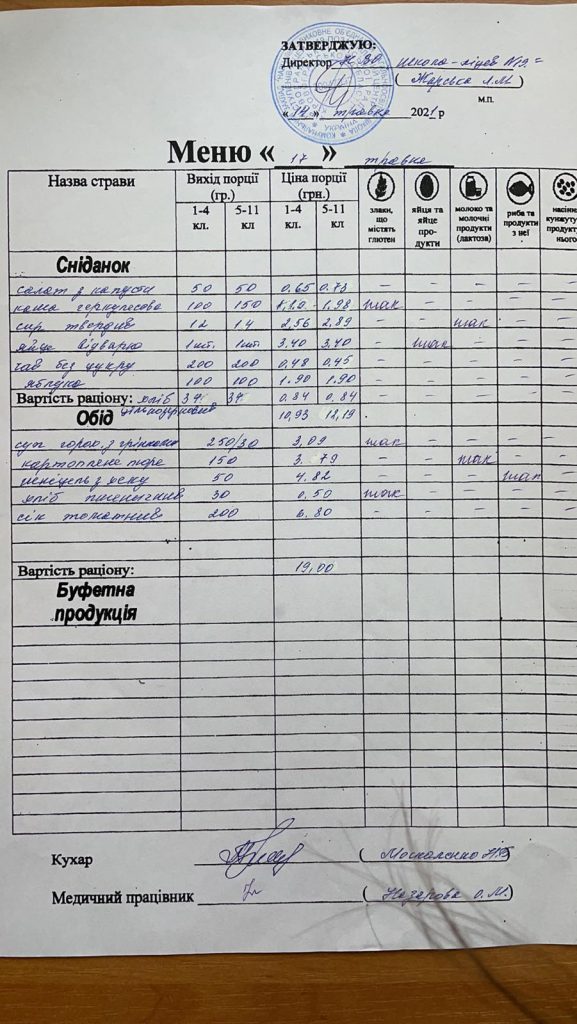 ЗАТВЕРДЖУЮ:
Директор Н-ВО школа-ліцей №19
( Жарська Л.М )
м.п.
« 14 » травня 2021 р
Меню « 17 » травня
Назва страви Вихід порції (гр.) Ціна порції (грн.)
1-4 кл. 5-11 кл 1-4 кл. 5-11 кл.
злаки, що містять глютен
яйця та яйце продукти
молоко та молочні продукти (лактоза)
риба та продукти з неї
насіння кунжуту
Сніданок
салат з капусти 50 50 0.65 0.73 – – – – –
каша геркулесова 100 150 1.98 так – – – –
сир твердий 12 14 2,56 2,89 – – так – –
яйце відварне 1шт. 1шт 3,40 3,40 – так – – –
чай без цукру 200 200 0,48 0,45 – – – – –
яблуко 100 100 1.90 1.90 – – – – –
Вартість раціону: хліб цільнозерновий 37 37 0.84 0.84
Обід 10,93 12,19
суп горох. з грінками 250/30 3,09 так – – – –
картопляне пюре 150 3.79 – – так – –
50 4.82 – – – так –
хліб пшеничний 30 0,50 так – – – –
сік томатний 200 6.80 – – – – –
Вартість раціону: 19,00
Буфетна продукція
Кухар ( Москаленко )
Медичний працівник ( Назарова О.М. )